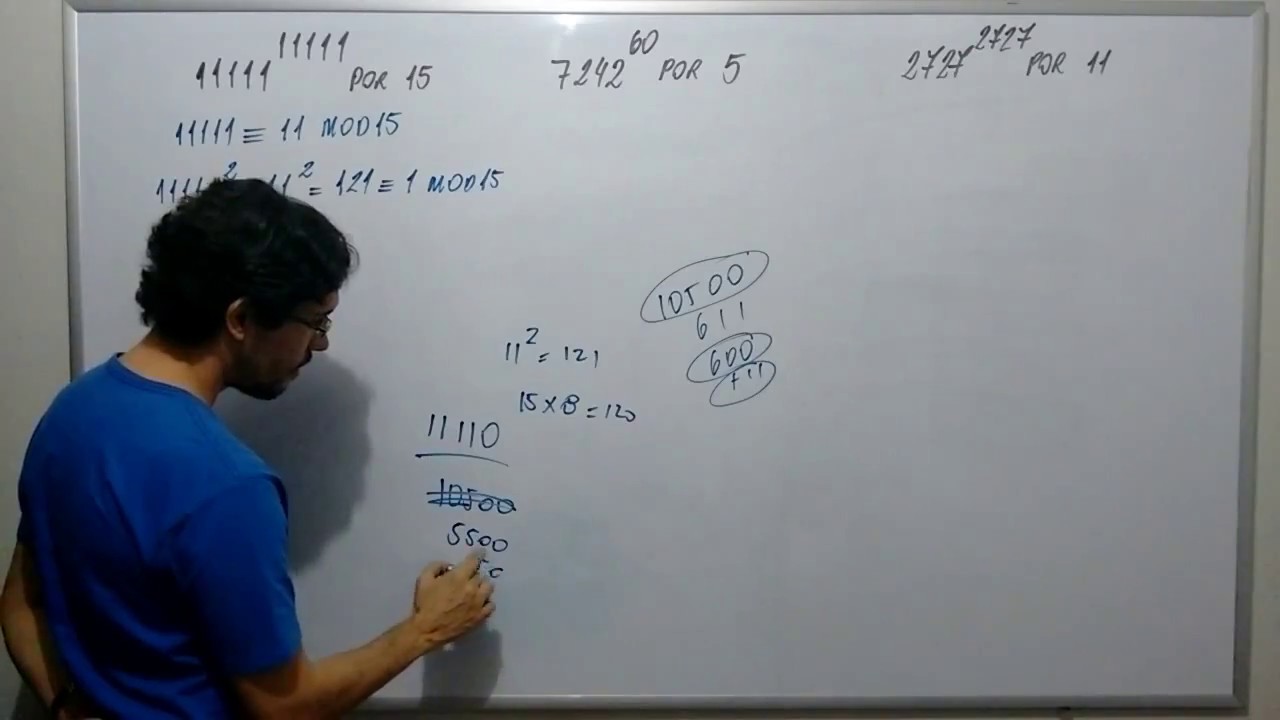 11111^11111 POR 15
7242^60 POR 5
2727^2727 POR 11
11111 ≡ 11 MOD 15
11² = 121 ≡ 1 MOD 15
10500
611
600
+11
11² = 121
15 x 8 = 120
11110
10500
5500